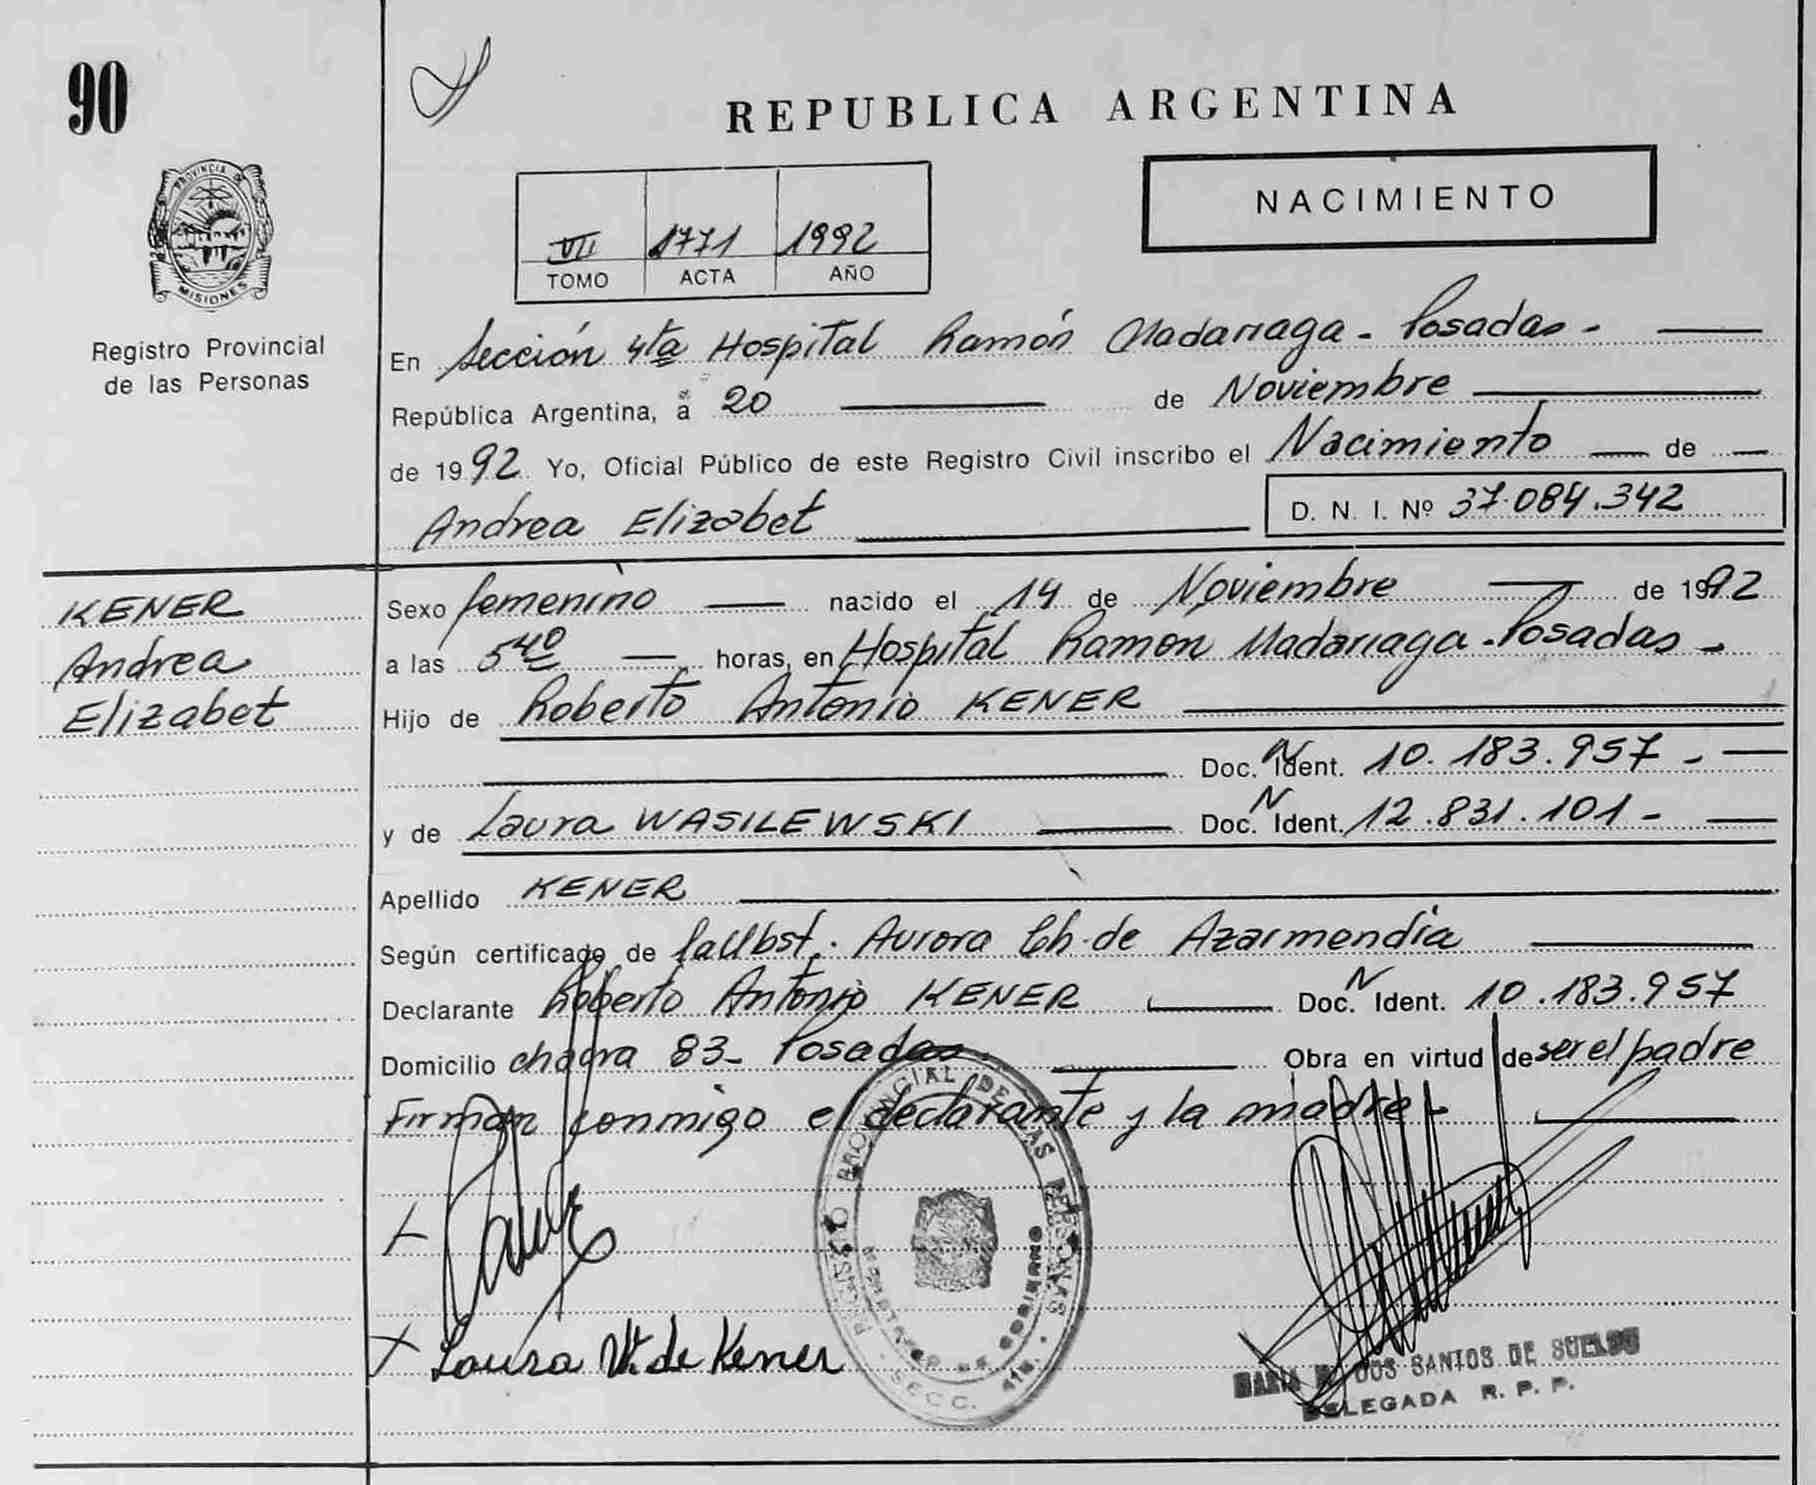 90
REPUBLICA ARGENTINA
PROVINCIA DE
MISIONES
Registro Provincial
de las Personas
NACIMIENTO
VII 1771 1992
TOMO ACTA AÑO
En Sección 4ta Hospital Ramón Madariaga - Posadas -
República Argentina, a 20 de Noviembre
de 1992 Yo, Oficial Público de este Registro Civil inscribo el Nacimiento de
Andrea Elizabet D. N. I. Nº 37.084.342
KENER
Andrea
Elizabet
Sexo femenino nacido el 14 de Noviembre de 1992
a las 5 40 horas, en Hospital Ramon Madariaga - Posadas -
Hijo de Roberto Antonio KENER
Doc. N Ident. 10.183.957 -
y de Laura WASILEWSKI Doc. N Ident. 12.831.101 -
Apellido KENER
Según certificado de la Obst. Aurora Ch. de Azarmendia
Declarante Roberto Antonio KENER Doc. N Ident. 10.183.957
Domicilio chacra 83 - Posadas Obra en virtud de ser el padre
Firman conmigo el declarante y la madre -
REGISTRO PROVINCIAL DE LAS PERSONAS
DE GOBIERNO
SECC. 4ta.
Laura W. de Kener
MARIA DOS SANTOS DE
DELEGADA R. P. P.